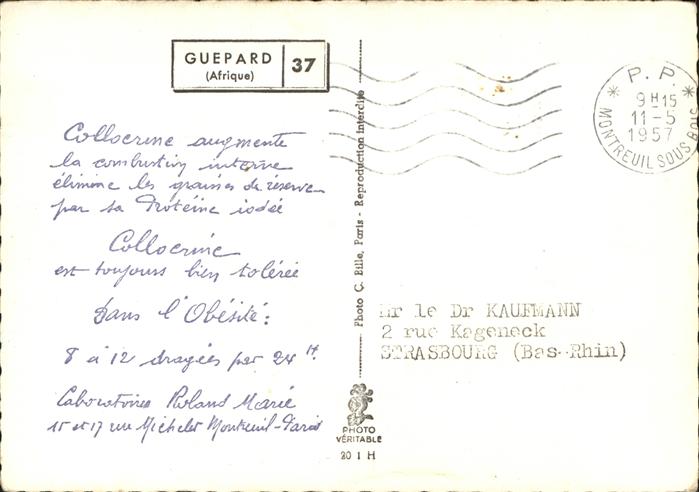 GUEPARD
(Afrique)
37
P. P.
9H15
11-5
1957
MONTREUIL SOUS
Collocrine augmente
la combustion interne
élimine les graisses de réserve
par sa Protéine iodée
Collocrine
est toujours bien tolérée
Dans l'Obésité:
8 à 12 dragées par 24 H.
Laboratoires Roland Marie
15 et 17 rue Michelet Montreuil-Paris
Photo C. Bille, Paris - Reproduction interdite
Mr le Dr KAUFMANN
2 rue Kageneck
STRASBOURG (Bas-Rhin)
PHOTO
VÉRITABLE
20 1 H